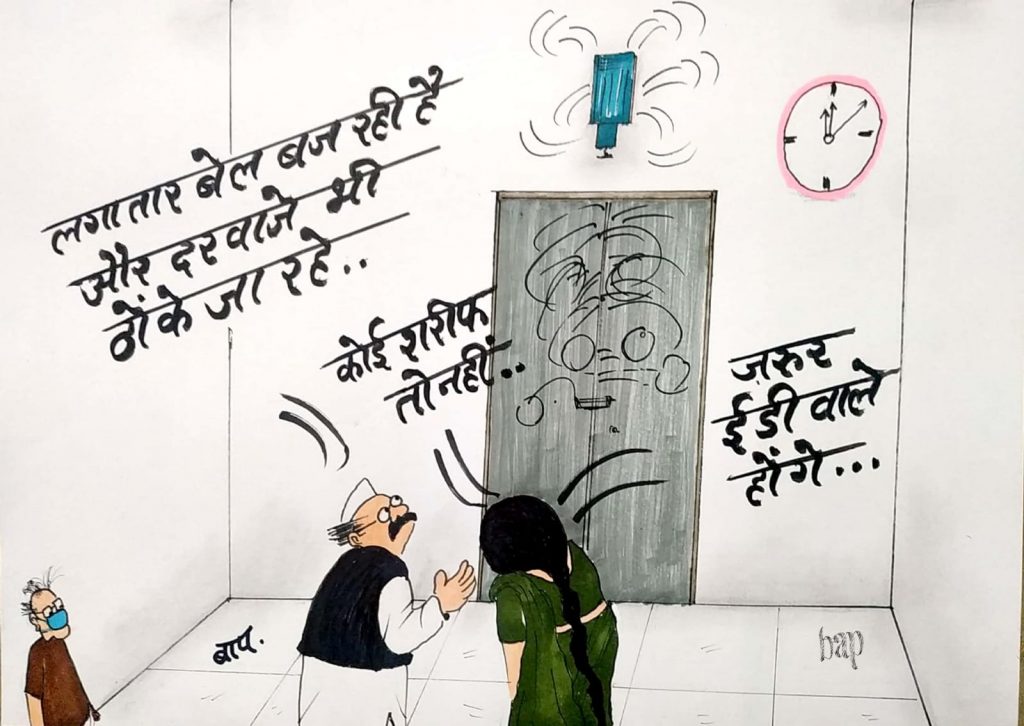 लगातार बेल बज रही है
और दरवाजे भी
ठोंके जा रहे..
कोई शरीफ
तो नहीं..
ज़रुर
ई डी वाले
होंगे...
बाप.
bap